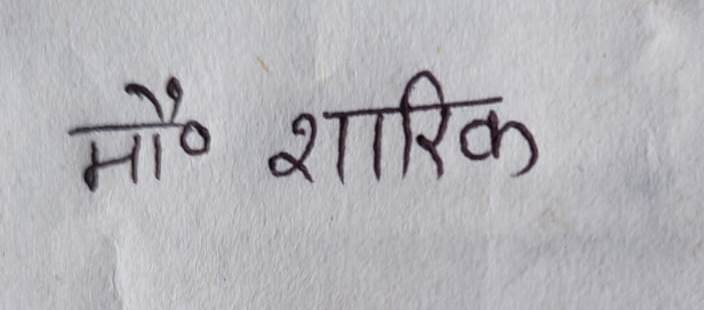 मौ० शारिक